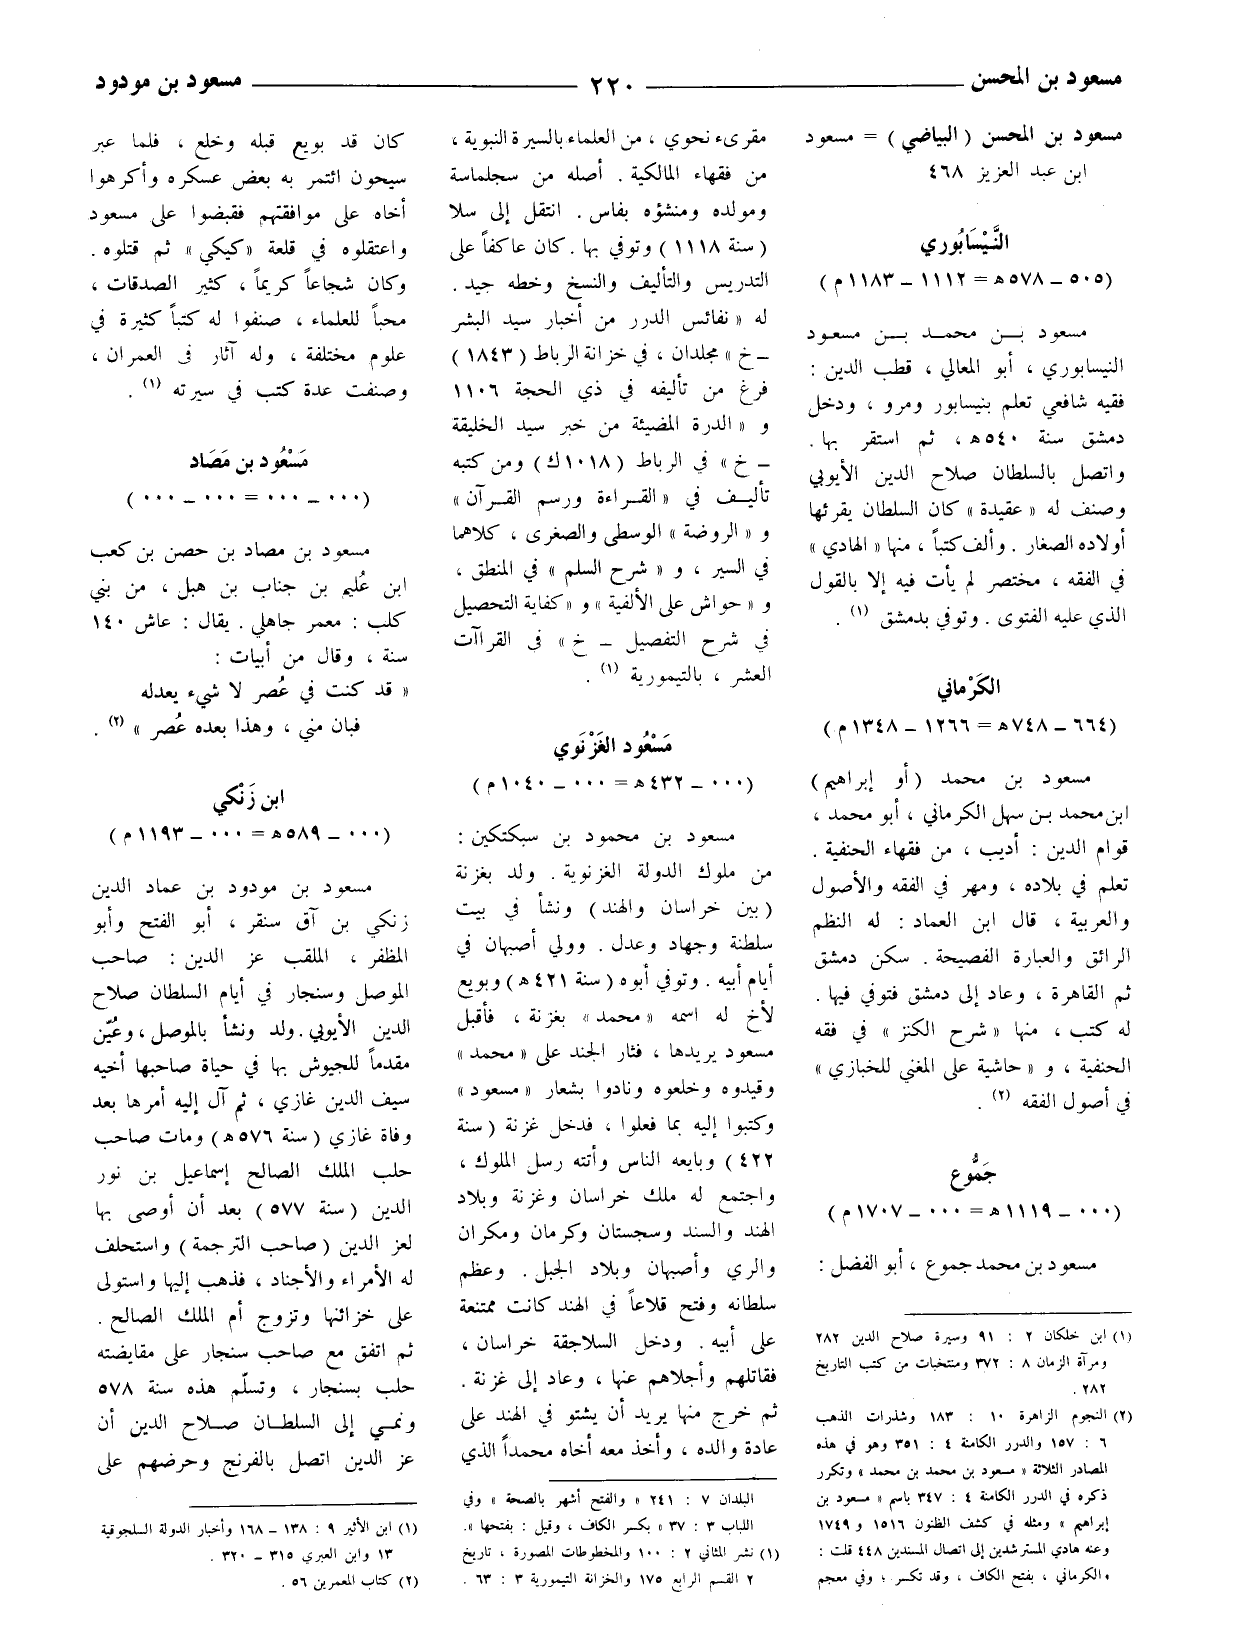 مسعود بن المحسن ٢٢٠ مسعود بن مودود
مسعود بن المحسن ( البياضي ) = مسعود
ابن عبد العزيز ٤٦٨
النَّيْسَابُوري
(٥٠٥ ــ ٥٧٨هـ = ١١١٢ ــ ١١٨٣م )
مسعود بــن محمــد بــن مسعــود
النيسابوري ، أبو المعالي ، قطب الدين :
فقيه شافعي تعلم بنيسابور ومرو ، ودخل
دمشق سنة ٥٤٠هـ، ثم استقر بها .
واتصل بالسلطان صلاح الدين الأيوبي
وصنف له « عقيدة » كان السلطان يقرئها
أولاده الصغار . وألف كتباً ، منها « الهادي »
في الفقه ، مختصر لم يأت فيه إلا بالقول
الذي عليه الفتوى . وتوفي بدمشق (١) .
الكَرْماني
(٦٦٤ ــ ٧٤٨هـ = ١٢٦٦ ــ ١٣٤٨م )
مسعود بن محمد ( أو إبراهيم )
ابن محمد بـن سهل الكرماني ، أبو محمد ،
قوام الدين : أديب ، من فقهاء الحنفية .
تعلم في بلاده ، ومهر في الفقه والأصول
والعربية ، قال ابن العماد : له النظم
الرائق والعبارة الفصيحة . سكن دمشق
ثم القاهرة ، وعاد إلى دمشق فتوفي فيها .
له كتب ، منها « شرح الكنز » في فقه
الحنفية ، و « حاشية على المغني للخبازي »
في أصول الفقه (٢) .
جَمُّوع
(٠٠٠ ــ ١١١٩هـ = ٠٠٠ ــ ١٧٠٧م )
مسعود بن محمد جموع ، أبو الفضل :
(١) ابن خلكان ٢ : ٩١ وسيرة صلاح الدين ٢٨٢
ومرآة الزمان ٨ : ٣٧٢ ومنتخبات من كتب التاريخ
٢٨٢ .
(٢) النجوم الزاهرة ١٠ : ١٨٣ وشذرات الذهب
٦ : ١٥٧ والدرر الكامنة ٤ : ٣٥١ وهو في هذه
المصادر الثلاثة « مسعود بن محمد بن محمد » وتكرر
ذكره في الدرر الكامنة ٤ : ٣٤٧ باسم « مسعود بن
إبراهيم » ومثله في كشف الظنون ١٥١٦ و ١٧٤٩
وعنه هادي المسترشدين إلى اتصال المسندين ٤٤٨ قلت :
« الكرماني ، بفتح الكاف ، وقد تكسر ؛ وفي معجم
مقرىء نحوي ، من العلماء بالسيرة النبوية ،
من فقهاء المالكية . أصله من سجلماسة
ومولده ومنشؤه بفاس . انتقل إلى سلا
( سنة ١١١٨ ) وتوفي بها . كان عاكفاً على
التدريس والتأليف والنسخ وخطه جيد .
له « نفائس الدرر من أخبار سيد البشر
ــ خ » مجلدان ، في خزانة الرباط ( ١٨٤٣ )
فرغ من تأليفه في ذي الحجة ١١٠٦
و « الدرة المضيئة من خبر سيد الخليقة
ــ خ » في الرباط (١٠١٨ك) ومن كتبه
تأليــف في « القــراءة ورسم القــرآن »
و « الروضة » الوسطى والصغرى ، كلاهما
في السير ، و « شرح السلم » في المنطق ،
و « حواش على الألفية » و « كفاية التحصيل
في شرح التفصيل ــ خ » في القراآت
العشر ، بالتيمورية (١) .
مَسْعُود الغَزْنَوي
(٠٠٠ ــ ٤٣٢هـ = ٠٠٠ ــ ١٠٤٠م )
مسعود بن محمود بن سبكتكين :
من ملوك الدولة الغزنوية . ولد بغزنة
( بين خراسان والهند ) ونشأ في بيت
سلطنة وجهاد وعدل . وولي أصبهان في
أيام أبيه . وتوفي أبوه ( سنة ٤٢١هـ ) وبويع
لأخ له اسمه « محمد » بغزنة ، فأقبل
مسعود يريدها ، فثار الجند على « محمد »
وقيدوه وخلعوه ونادوا بشعار « مسعود »
وكتبوا إليه بما فعلوا ، فدخل غزنة ( سنة
٤٢٢ ) وبايعه الناس وأتته رسل الملوك ،
واجتمع له ملك خراسان وغزنة وبلاد
الهند والسند وسجستان وكرمان ومكران
والري وأصبهان وبلاد الجبل . وعظم
سلطانه وفتح قلاعاً في الهند كانت ممتنعة
على أبيه . ودخل السلاجقة خراسان ،
فقاتلهم وأجلاهم عنها ، وعاد إلى غزنة .
ثم خرج منها يريد أن يشتو في الهند على
عادة والده ، وأخذ معه أخاه محمداً الذي
البلدان ٧ : ٢٤١ « والفتح أشهر بالصحة » وفي
اللباب ٣ : ٣٧ « بكسر الكاف ، وقيل : بفتحها ».
(١) نشر المثاني ٢ : ١٠٠ والمخطوطات المصورة ، تاريخ
٢ القسم الرابع ١٧٥ والخزانة التيمورية ٣ : ٦٣ .
كان قد بويع قبله وخلع ، فلما عبر
سيحون ائتمر به بعض عسكره وأكرهوا
أخاه على موافقتهم فقبضوا على مسعود
واعتقلوه في قلعة « كيكي » ثم قتلوه .
وكان شجاعاً كريماً ، كثير الصدقات ،
محباً للعلماء ، صنفوا له كتباً كثيرة في
علوم مختلفة ، وله آثار في العمران ،
وصنفت عدة كتب في سيرته (١) .
مَسْعُود بن مَصَاد
(٠٠٠ ــ ٠٠٠ = ٠٠٠ ــ ٠٠٠ )
مسعود بن مصاد بن حصن بن كعب
ابن عُليم بن جناب بن هبل ، من بني
كلب : معمر جاهلي . يقال : عاش ١٤٠
سنة ، وقال من أبيات :
« قد كنت في عُصر لا شيء يعدله
فبان مني ، وهذا بعده عُصر » (٢) .
ابن زَنْكي
(٠٠٠ ــ ٥٨٩هـ = ٠٠٠ ــ ١١٩٣م )
مسعود بن مودود بن عماد الدين
زنكي بن آق سنقر ، أبو الفتح وأبو
المظفر ، الملقب عز الدين : صاحب
الموصل وسنجار في أيام السلطان صلاح
الدين الأيوبي . ولد ونشأ بالموصل ، وعُيّن
مقدماً للجيوش بها في حياة صاحبها أخيه
سيف الدين غازي ، ثم آل إليه أمرها بعد
وفاة غازي ( سنة ٥٧٦هـ ) ومات صاحب
حلب الملك الصالح إسماعيل بن نور
الدين ( سنة ٥٧٧ ) بعد أن أوصى بها
لعز الدين ( صاحب الترجمة ) واستحلف
له الأمراء والأجناد ، فذهب إليها واستولى
على خزائنها وتزوج أم الملك الصالح .
ثم اتفق مع صاحب سنجار على مقايضته
حلب بسنجار ، وتسلّم هذه سنة ٥٧٨
ونمــي إلى السلطــان صــلاح الدين أن
عز الدين اتصل بالفرنج وحرضهم على
(١) ابن الأثير ٩ : ١٣٨ ــ ١٦٨ وأخبار الدولة السلجوقية
١٣ وابن العبري ٣١٥ ــ ٣٢٠ .
(٢) كتاب المعمرين ٥٦ .